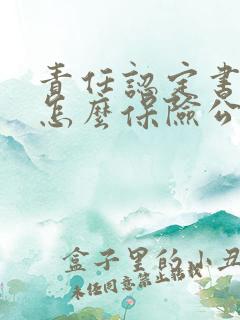 責任認定書
怎麼保險公
盒子里的小丑
未任同意禁止轉載